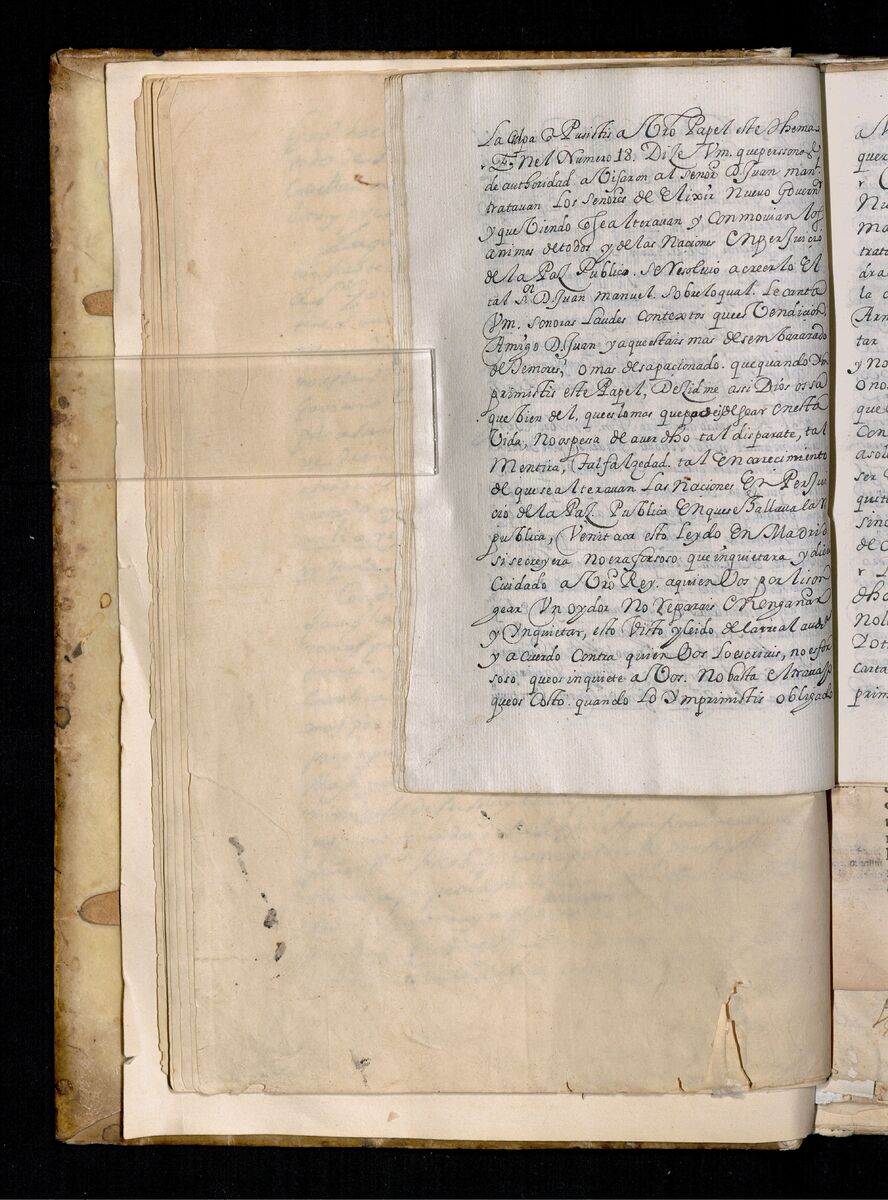 La Culpa Q Pusistis a Vrō Papel este thema
En el Numero 18. Dise Vm. que perssonas
de authoridad avisaron al señor D. Juan man.
tratavan Los señores de Elixir Nuevo Govern
y que Viendo Q se alteravan y Conmovian los
animos de todos y de las Naciones En perjuicio
de la Paz Publica. se Resolvio a creerlo El
tal Sōn D. Juan manuel. sobre lo qual. Le canta
Vm. sonoras Laudes Contextos que es Vendicion
Amigo D. Juan ya que estais mas desembarazado
de Temores, o mas desapacionado. que quando Ym
primistis este Papel, Dezidme asi Dios os sa
que bien del, que es lo mas que podeis desear en esta
Vida, No os pesa de aver dho tal disparate, tal
Mentira, tal falzedad. tal Encarecimiento
de que se alteravan Las Naciones En Perjui
cio de la Paz Publica En que se hallava la R
publica, Venit aca esto Leydo En Madrid
si se creyera no era forsoso que inquietara y diera
Cuidado a Vrō Rey. a quien Vos por lison
gear Un oydor No Reparais En engañar
y Ynquietar, esto Visto y leido de la rreal aud
y acuerdo Contra quien Vos Lo escrivis, no es for
soso, que os inquiete a Vos. No basta el travajo
que os Costo. quando Lo Ymprimistis obligado
a V
quer
Nu
ma
trata
dra
la c
Arm
tar
y No
O no
que
Con
asol
ser
quit
sin
de C
dho
Nol
Yot
carta
prim